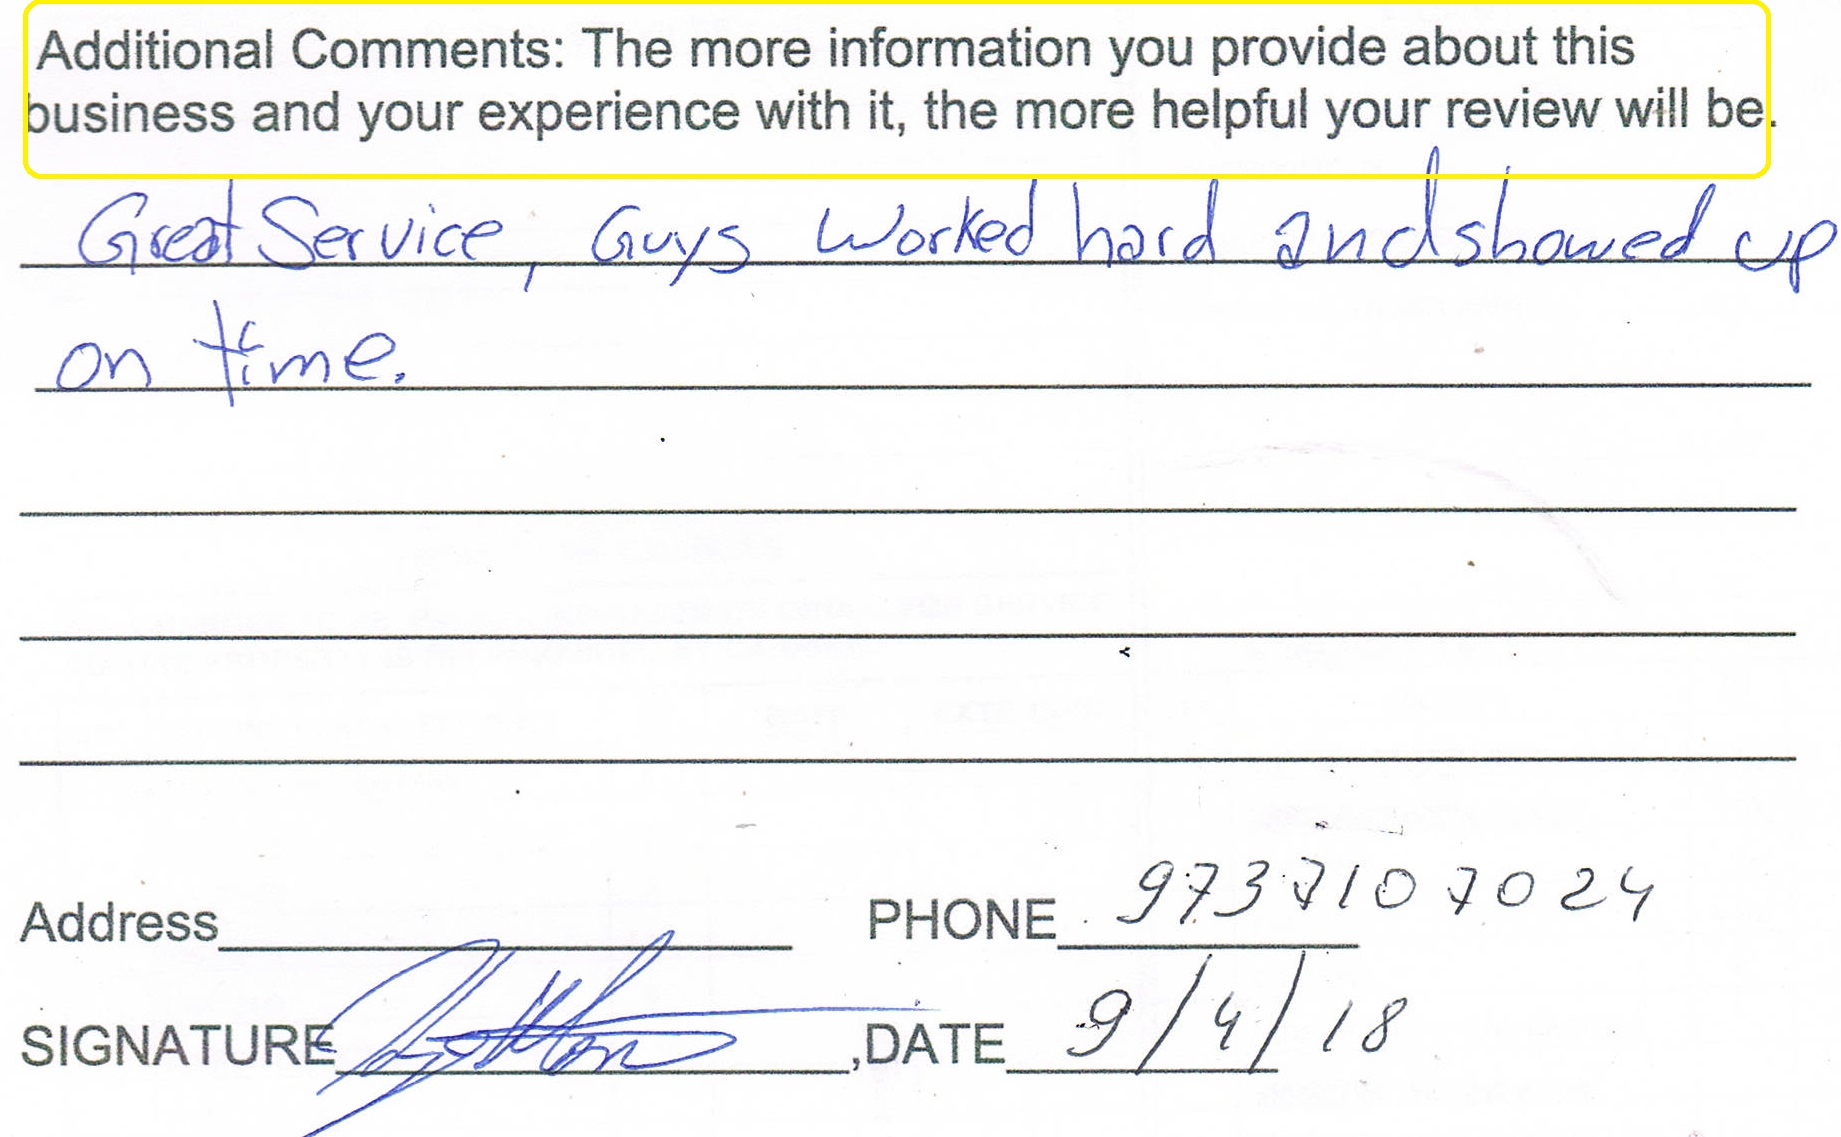 Additional Comments: The more information you provide about this
business and your experience with it, the more helpful your review will be.
Great Service, Guys Worked hard and showed up
on time.
Address PHONE 9737107024
SIGNATURE ,DATE 9/4/18